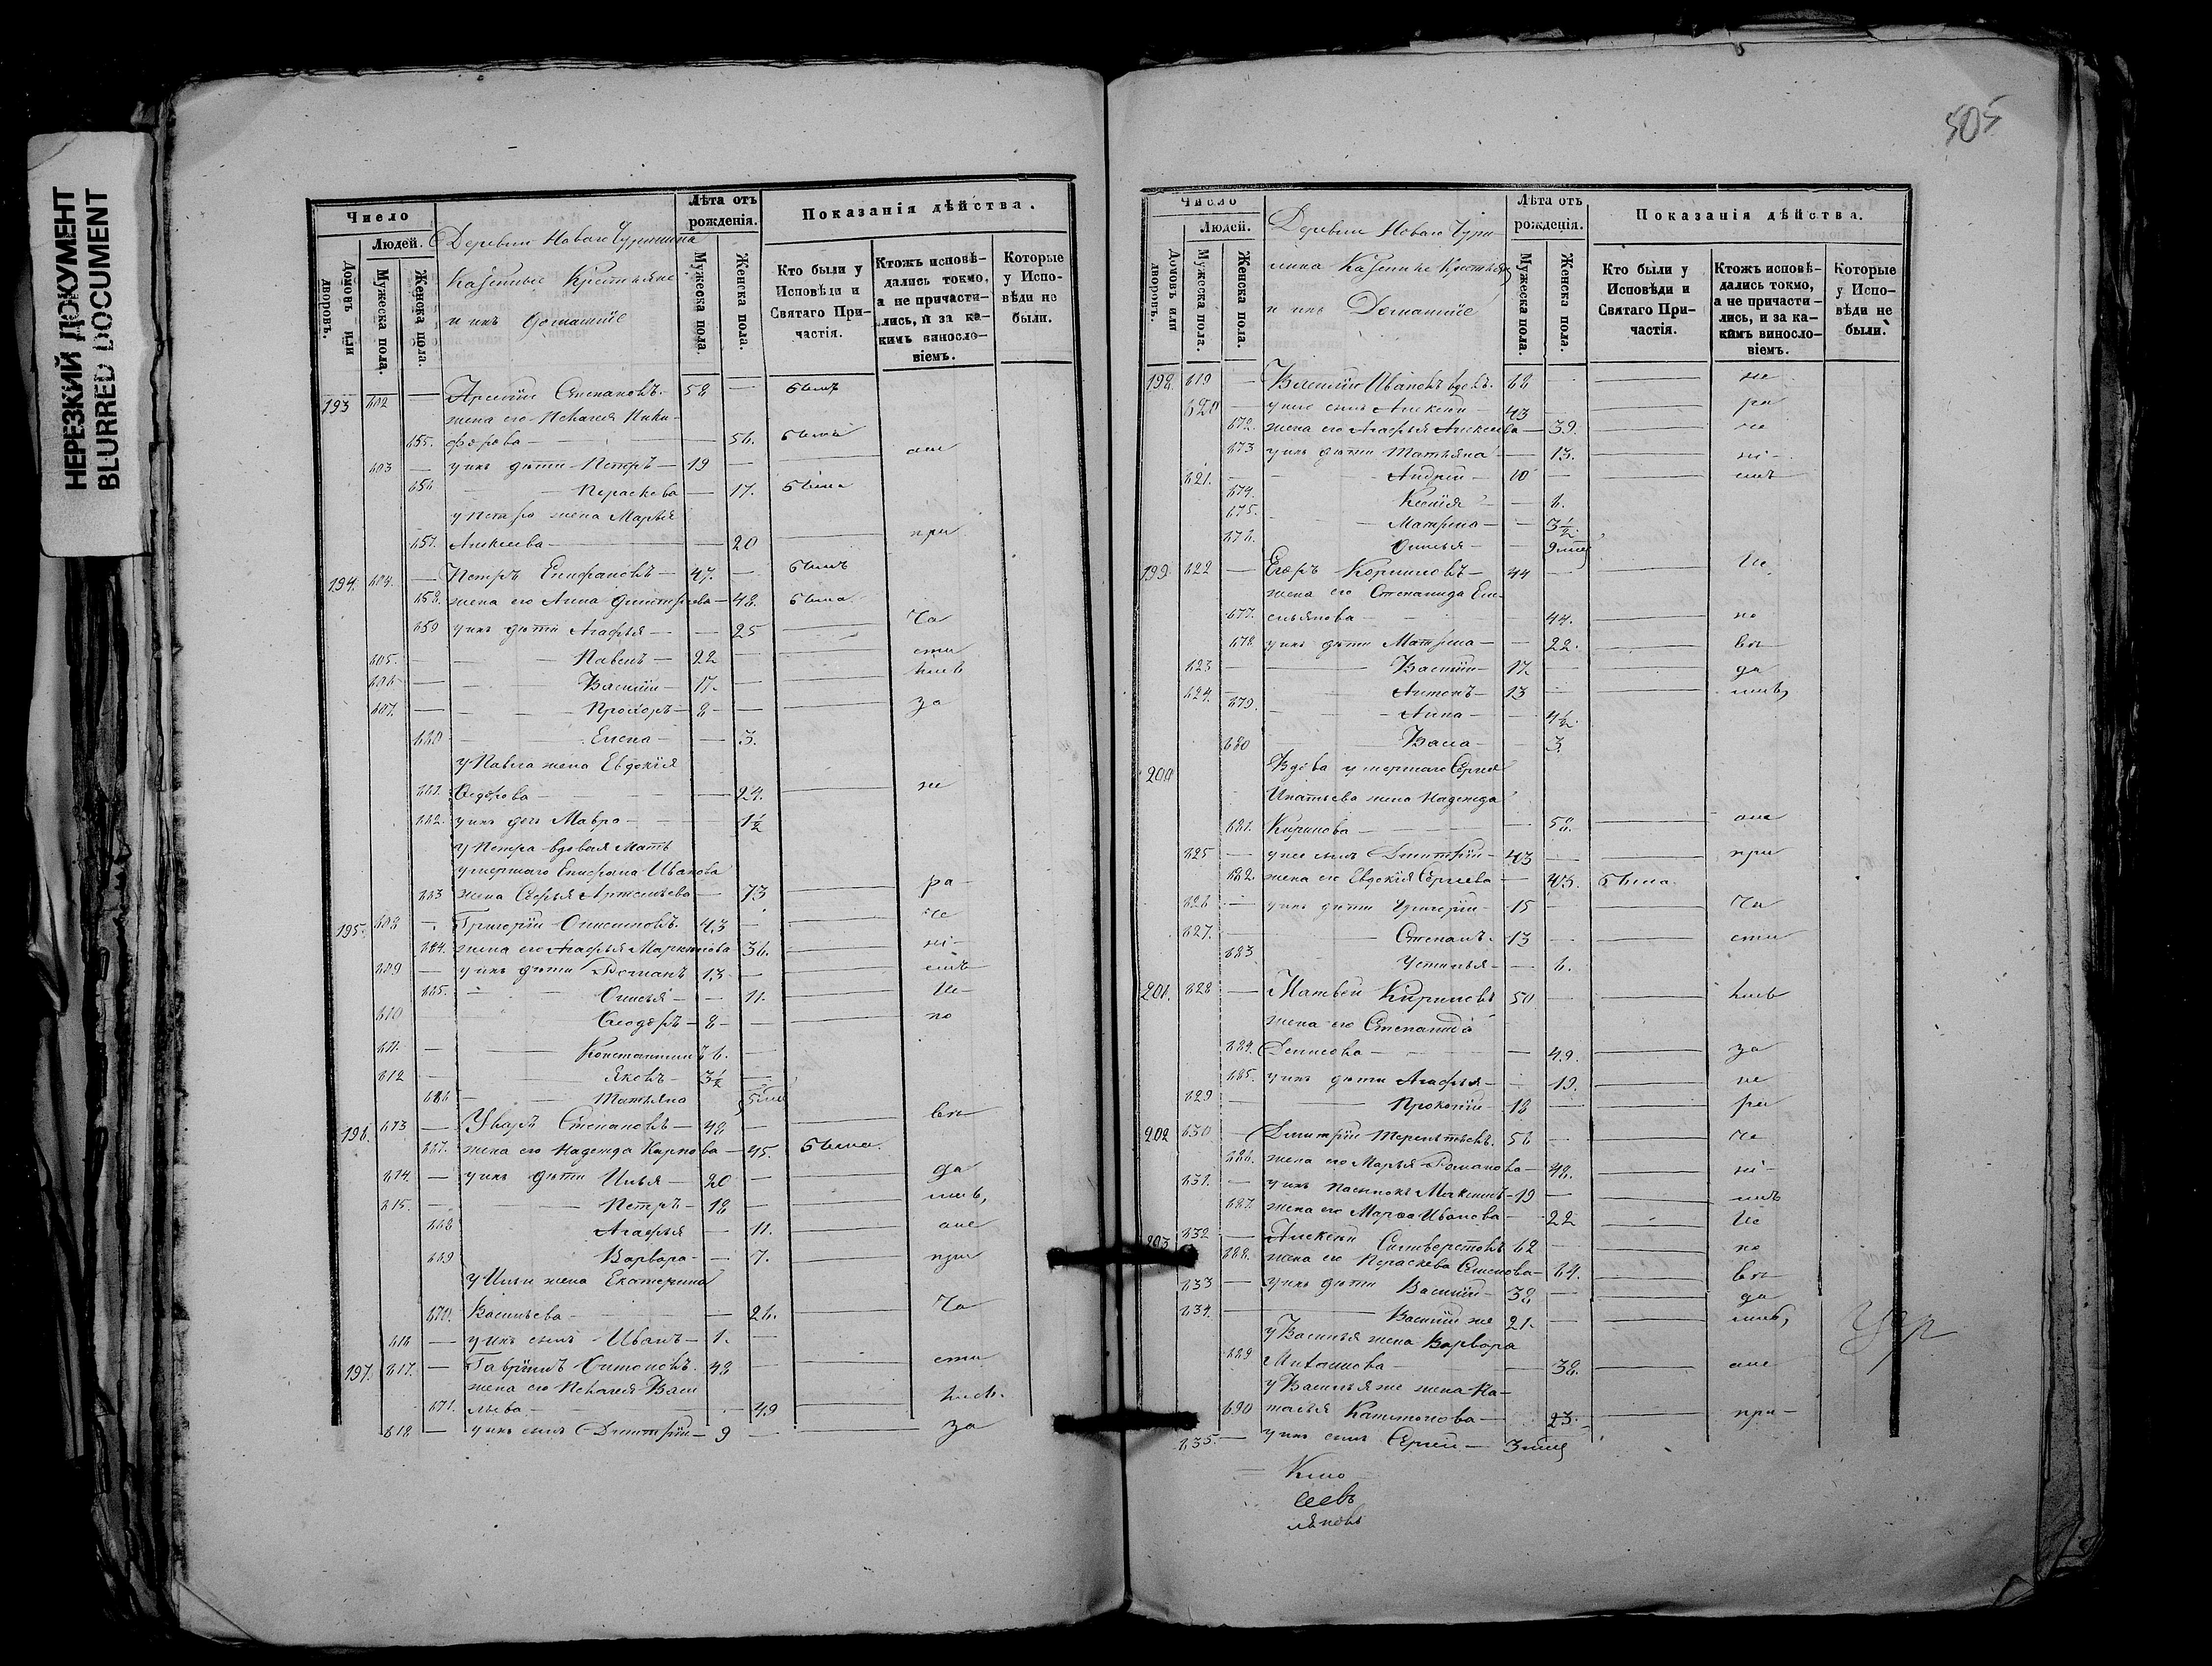 НЕРЕЗКИЙ ДОКУМЕНТ
BLURRED DOCUMENT
Число
Лѣта отъ рожденія.
Показанія дѣйства.
Людей.
Деревни Новаго
Домовъ или дворовъ.
Мужеска пола.
Женска пола.
Казенные Крестьяне
и ихъ домашніе
Мужеска пола.
Женска пола.
Кто были у Исповѣди и Святаго Причастія.
Ктожъ исповѣдались токмо, а не причастились, и за какимъ винословіемъ.
Которые у Исповѣди не были.
193 602 — Арсеній Степановъ 58 — былъ
жена его Пелагея Ники-
655. форова — 56. была
603 — у ихъ дѣти Петръ — 19 —
656 — Параскева — 17. была
у Петра жена Марья
657. Алексѣева — 20 — при
194. 604. — Петръ Епифановъ — 47. — былъ
658. жена его Анна Димитріева — 48. была
659 у ихъ дѣти Агафья — 25 — ча
605. — Павелъ — 22 — сти
606 — Василій — 17. —
607. — Прохоръ — 8 — за
660 — Елена — 3.
у Павла жена Евдокія
661. Ѳедорова — 24. — не
662. у ихъ дочь Мавра — 1½
у Петра вдовая Мать
умершаго Епифана Иванова
663 жена Софья Артемьева — 73 — ра
195. 608 — Григорій Онисимовъ. 43 — че
664. жена его Агафья 36. — ні
609 — у ихъ дѣти Романъ 13 —
665. — 11. — Не
610 — Ѳеодоръ — 8 — по
611. — Константинъ 6. —
612 — Яковъ — 3½ —
666 — Татьяна
196. 613 — Уваръ Степановъ — 48 —
667. жена его Надежда Карпова — 45. была
614. — у ихъ дѣти Илья — 20 — да
615. — Петръ — 18 —
668 Агафья — 11.
669 Варвара — 7. — при
у Ильи жена Екатерина
670. Васильева — 26. — ча
616 — у ихъ сынъ Иванъ — 1. —
197. 617. — Гавріилъ Антоновъ. 48 — сти
жена его Пелагея Васи
671. льева — 49
618 — у ихъ сынъ Димитрій — 9 — за
505
Число
Лѣта отъ рожденія.
Показанія дѣйства.
Людей.
Деревни Новаго
Казенные Крестьяне
и ихъ Домашніе
Домовъ или дворовъ.
Мужеска пола.
Женска пола.
Мужеска пола.
Женска пола.
Кто были у Исповѣди и Святаго Причастія.
Ктожъ исповѣдались токмо, а не причастились, и за какимъ винословіемъ.
Которые у Исповѣди не были.
198. 619 — Василій Ивановъ вдовъ. 68 — не
620 — у него сынъ Алексѣй — 43 — ра
672. жена его Агафья Алексѣева — 39. — че
673 у ихъ дѣти Татьяна — 13. — ні
621. — Андрей — 10 —
674. Ксенія — 6.
675. Матрена — 3½
676. — 9 мѣс
199. 622 — Егоръ Корниловъ — 44 — Не
жена его Степанида Еме-
677. льянова — 44. — по
678 у ихъ дѣти Матрена — 22.
623 — Василій — 17 — да
624. — Антонъ — 13 —
679. — Анна — 4½
680 — Васса — 3.
200 Вдова умершаго Сергея
Ипатьева жена Надежда
681. Кирилова — 58.
625 — у нее сынъ Димитрій — 43 — при
682. жена его Евдокія Сергеева — 43. была
626 — у ихъ дѣти Григорій — 15 — ча
627. — Степанъ. 13 — сти
683 Устинья — 6.
201. 628 — Матвей Кириловъ 50 —
жена его Степанида
684. Денисова — 49. — за
685. у ихъ дѣти Агафья — 19. — не
629 — Прокопій — 18 — ра
202 630 — Димитрій Терентьевъ. 56 — че
686. жена его Марья Романова — 48. — ні
631. — у ихъ пасынокъ Максимъ — 19 —
687. жена его Марѳа Иванова — 22 — Не
203 632 — Алексѣй Силиверстовъ 62 — по
688. жена его Параскева Семенова — 64.
633 — у ихъ дѣти Василій — 38 — да
634. — Василій же 21. —
у Василья жена Варвара
689 Михайлова — 38.
у Василья же жена На-
690 талья Капитонова — 23. — при
635. — у ихъ сынъ Сергей — 3 мѣс